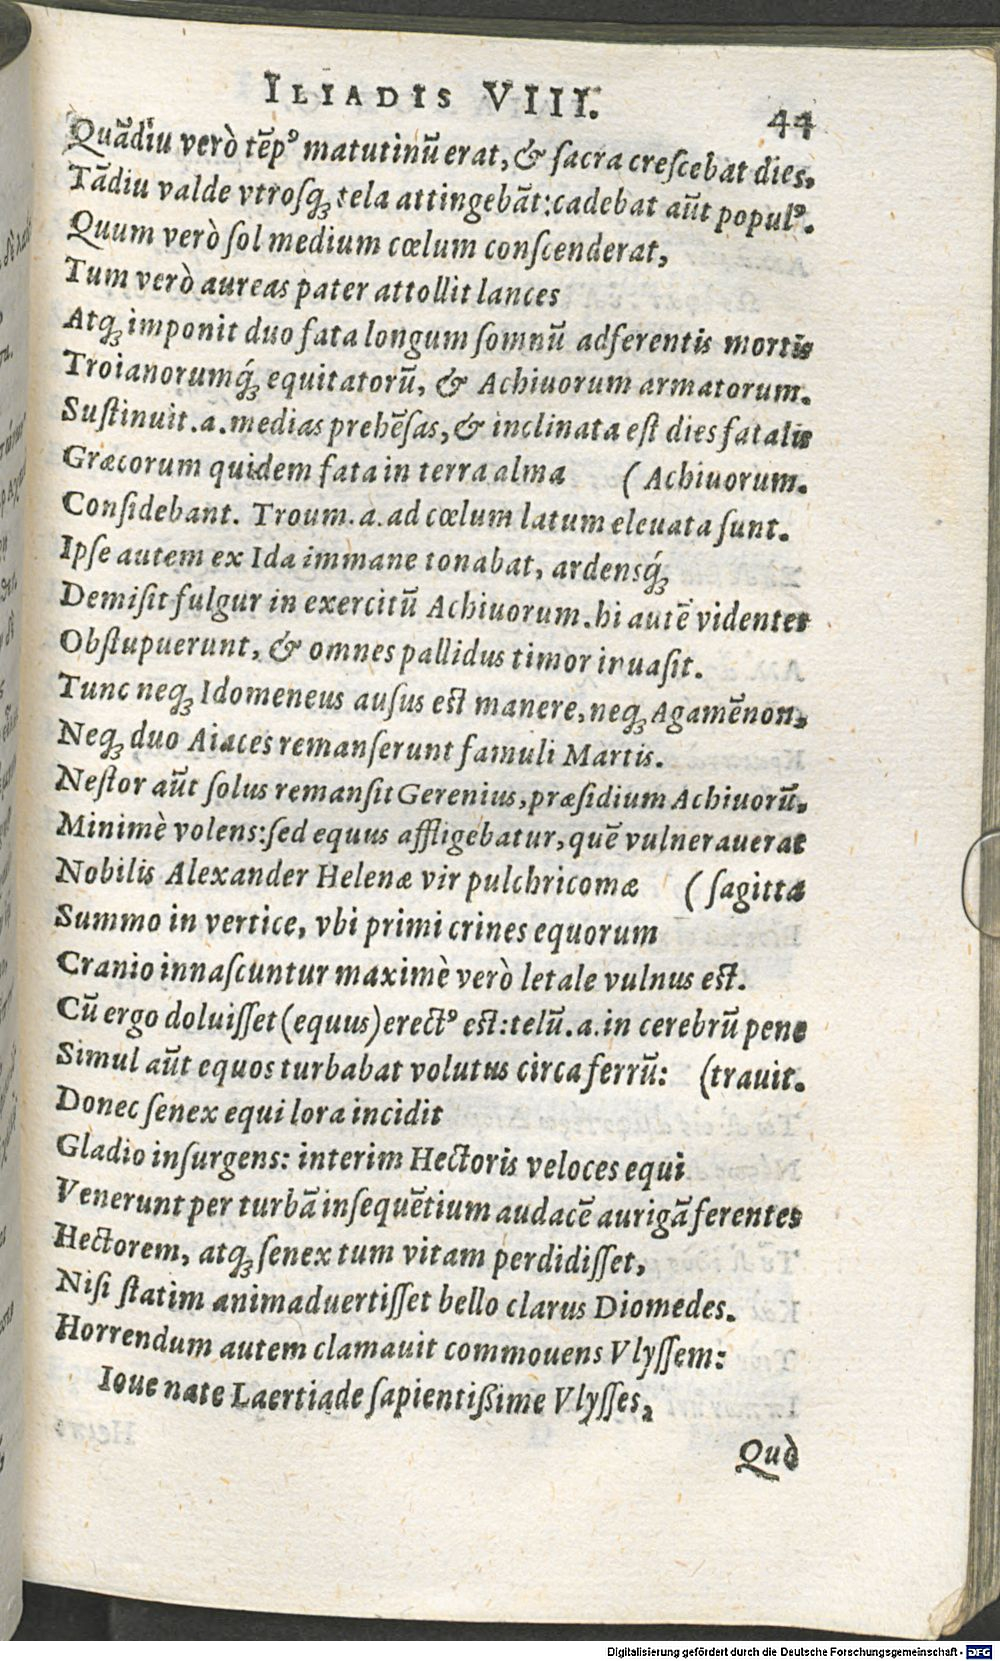 ILIADIS VIII. 44
Quãdiu verò tẽpꝰ matutinũ erat, & ſacra creſcebat dies,
Tãdiu valde vtroſqꝫ tela attingebãt: cadebat aũt populꝰ.
Quum verò ſol medium cœlum conſcenderat,
Tum verò aureas pater attollit lances
Atqꝫ imponit duo fata longum ſomnũ adferentis mortis
Troianorumq́ꝫ equitatorũ, & Achiuorum armatorum.
Suſtinuit .a. medias prehẽſas, & inclinata eſt dies fatalis
Græcorum quidem fata in terra alma (Achiuorum.
Conſidebant. Troum .a. ad cœlum latum eleuata ſunt.
Ipſe autem ex Ida immane tonabat, ardensq́ꝫ
Demiſit fulgur in exercitũ Achiuorum. hi autẽ videntes
Obſtupuerunt, & omnes pallidus timor inuaſit.
Tunc neqꝫ Idomeneus auſus eſt manere, neqꝫ Agamẽnon,
Neqꝫ duo Aiaces remanſerunt famuli Martis.
Neſtor aũt ſolus remanſit Gerenius, præſidium Achiuorũ,
Minimè volens: ſed equus affligebatur, quẽ vulnerauerat
Nobilis Alexander Helenæ vir pulchricomæ (ſagitta
Summo in vertice, vbi primi crines equorum
Cranio innaſcuntur maximè verò letale vulnus eſt.
Cũ ergo doluiſſet (equus) erectꝰ eſt: telũ .a. in cerebrũ pene
Simul aũt equos turbabat volutus circa ferrũ: (trauit.
Donec ſenex equi lora incidit
Gladio inſurgens: interim Hectoris veloces equi
Venerunt per turbã inſequẽtium audacẽ aurigã ferentes
Hectorem, atqꝫ ſenex tum vitam perdidiſſet,
Niſi ſtatim animaduertiſſet bello clarus Diomedes.
Horrendum autem clamauit commouens Vlyſſem:
Ioue nate Laertiade ſapientißime Vlyſſes,
Quò
Digitalisierung gefördert durch die Deutsche Forschungsgemeinschaft - DFG